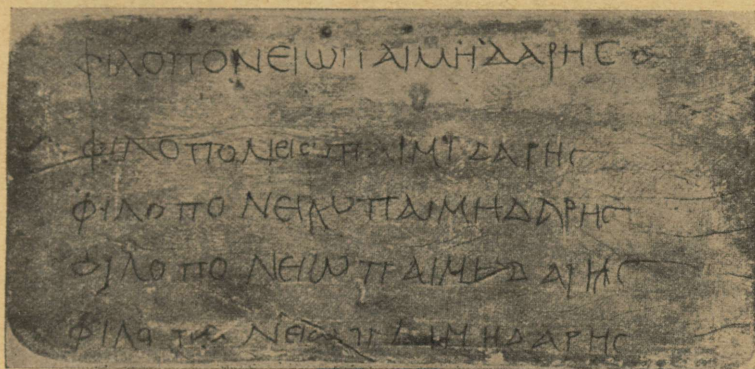 ΦΙΛΟΠΟΝΕΙΩΠΑΙΜΗΔΑΡΗϹ
ΦΙΛΟΠΟΝΕΙΩΠΑΙΜΗΔΑΡΗϹ
ΦΙΛΟΠΟΝΕΙΩΠΑΙΜΗΔΑΡΗϹ
ΦΙΛΟΠΟΝΕΙΩΠΑΙΜΗΔΑΡΗϹ
ΦΙΛΟΠΟΝΕΙΩΠΑΙΜΗΔΑΡΗϹ